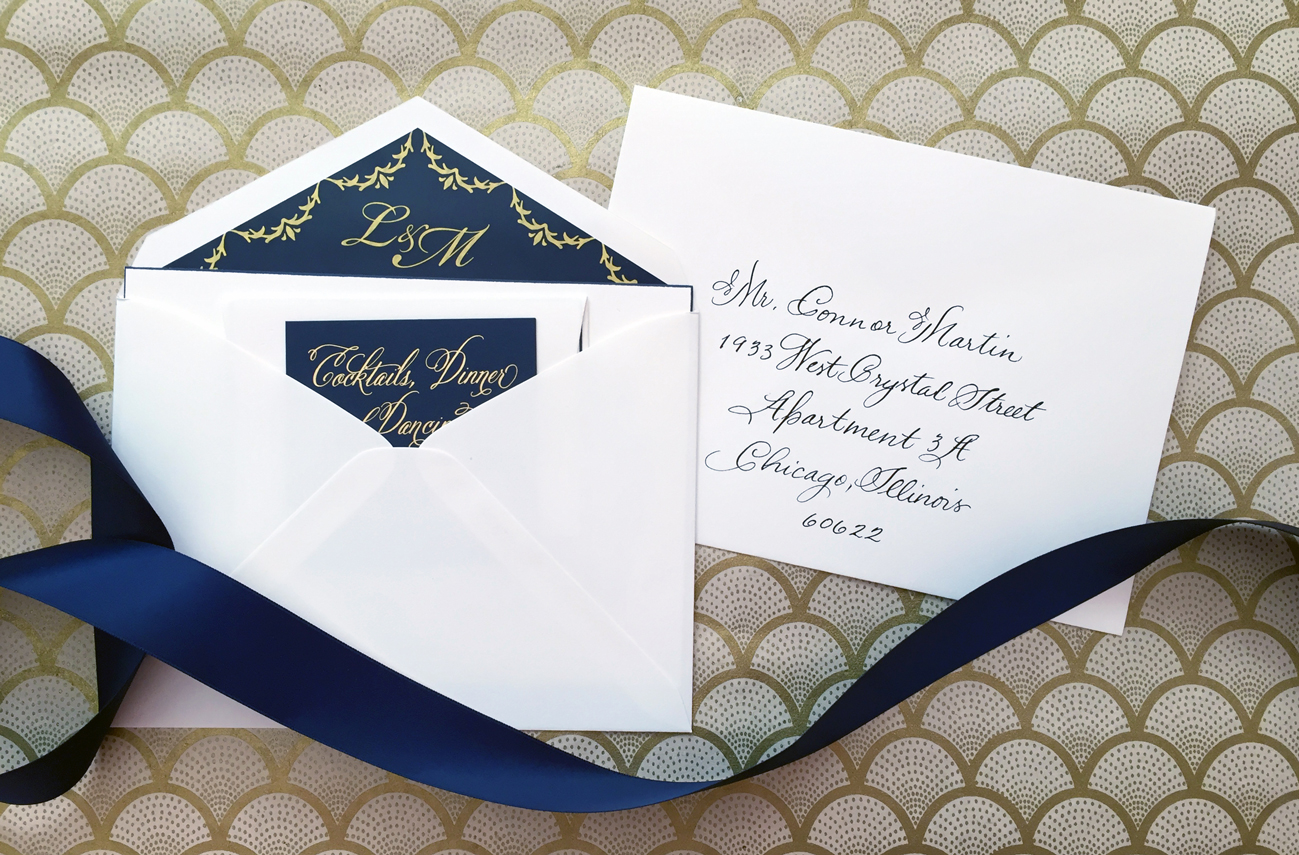 L&M
Cocktails, Dinner
Mr. Connor Martin
1933 West Crystal Street
Apartment 3A
Chicago, Illinois
60622